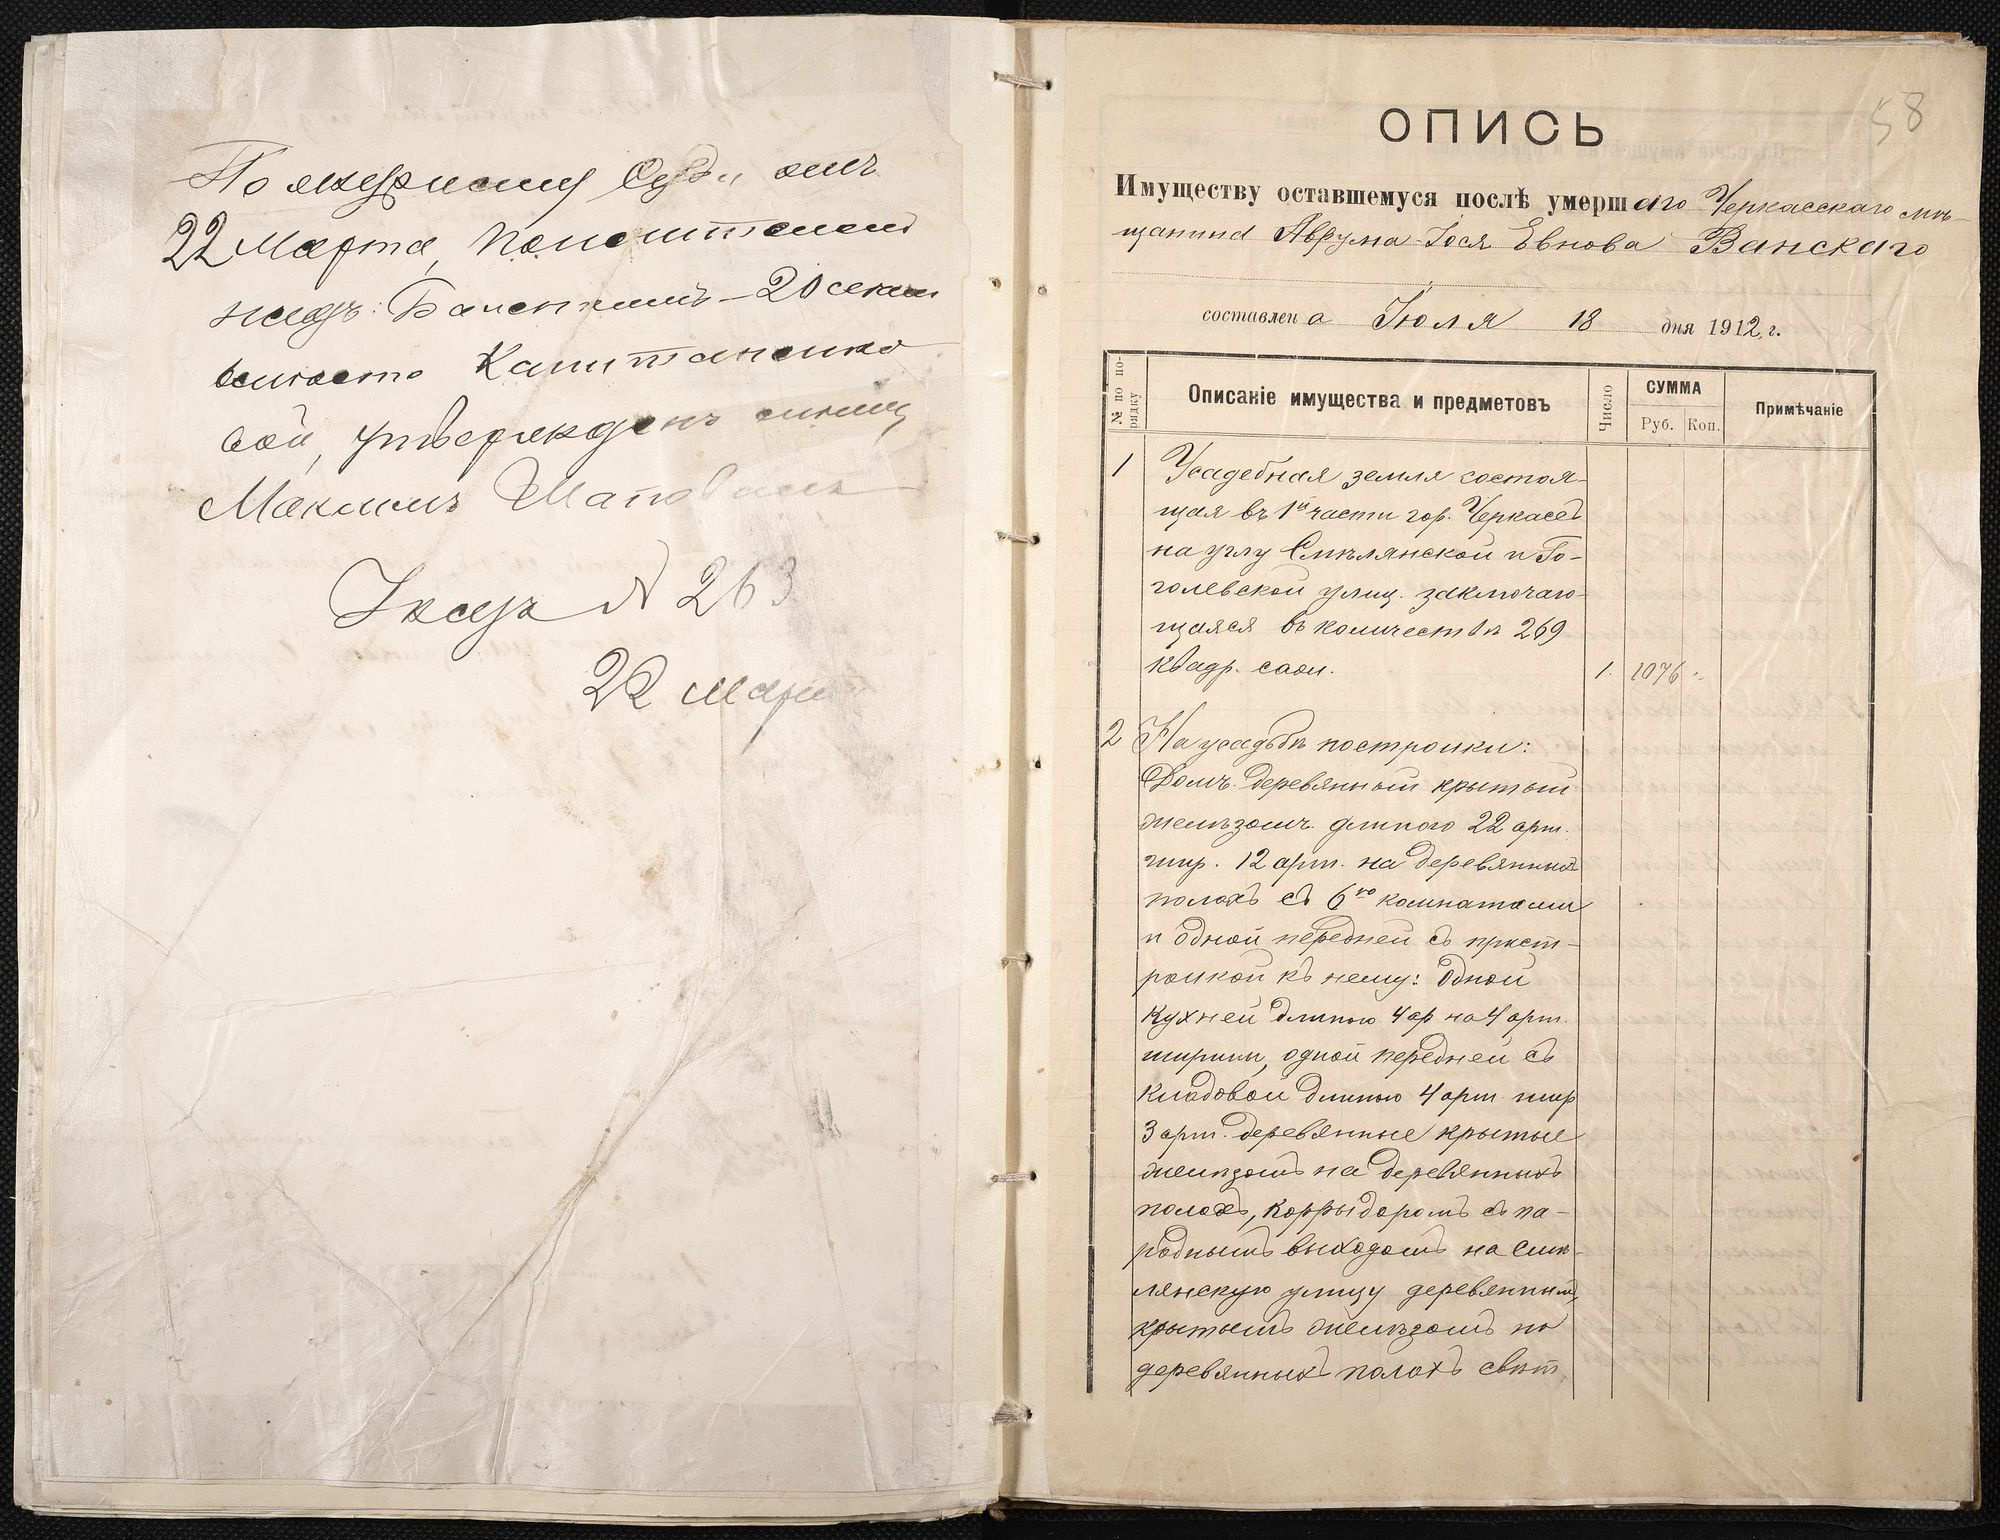 22 Марта,
Максимъ Шаповалъ
Указъ № 263
22 мар
58
ОПИСЬ
Имуществу оставшемуся послѣ умершаго Черкасскаго мѣ-
щанина Аврума-Іося Евнова Ванскаго
составлена Іюля 18 дня 1912 г.
№ по по-
рядку
Описаніе имущества и предметовъ
Число
СУММА
Руб. Коп.
Примѣчаніе
1 Усадебная земля состоя-
щая въ 1й части гор. Черкассъ
на углу Смѣлянской и Го-
голевской улиц. заключаю-
щаяся въ количествѣ 269
квадр. саж. 1. 1076 "
2 На усадьбѣ постройки:
Домъ деревянный крытый
желѣзомъ длиною 22 арш.
шир. 12 арш. на деревянныхъ
полахъ съ 6ю комнатами
и одной передней съ прист-
ройкой къ нему: одной
кухней длиною 4 ар на 4 арш.
ширины, одной передней съ
кладовой длиною 4 арш. шир
3 арш. деревянные крытые
желѣзомъ на деревянныхъ
полахъ, корридоромъ съ па-
раднымъ выходомъ на Смѣ-
лянскую улицу деревяннымъ,
крытымъ желѣзомъ на
деревянныхъ полахъ свѣт